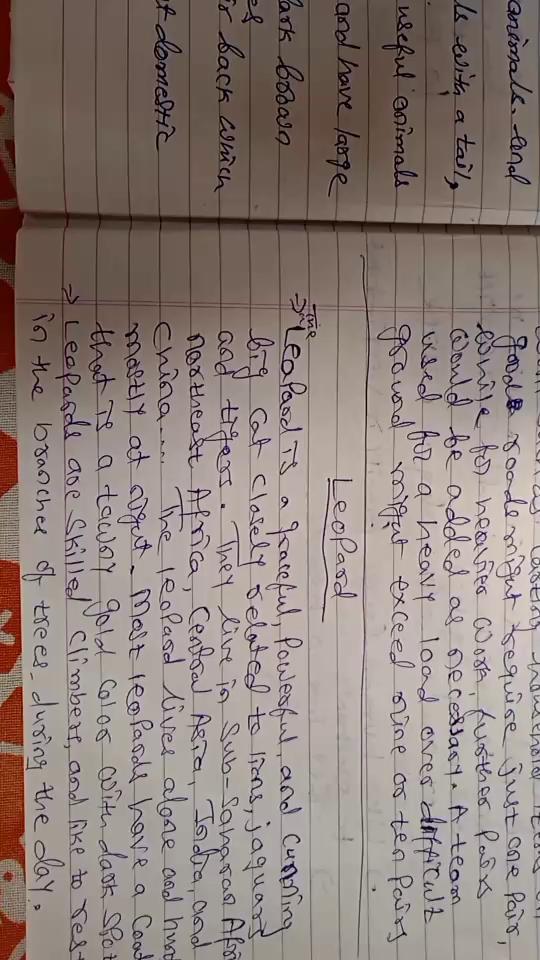 animals. And
ls with a tail,
useful animals
and have large
ark brown
es
ir back which
t domestic
good roads might require just one pair,
while for heavier work, further pairs
would be added as necessary. A team
used for a heavy load over difficult
ground might exceed nine or ten pairs
Leopard
→ The Leopard is a graceful, powerful, and cunning
big cat closely related to lions, jaguars
and tigers. They live in Sub-Saharan Afri
northeast Africa, Central Asia, India, and
China.... The leopard lives alone and hunt
mostly at night. Most leopards have a coat
that is a tawny gold color with dark spot
→ Leopards are skilled climbers, and like to rest
in the branches of trees during the day.